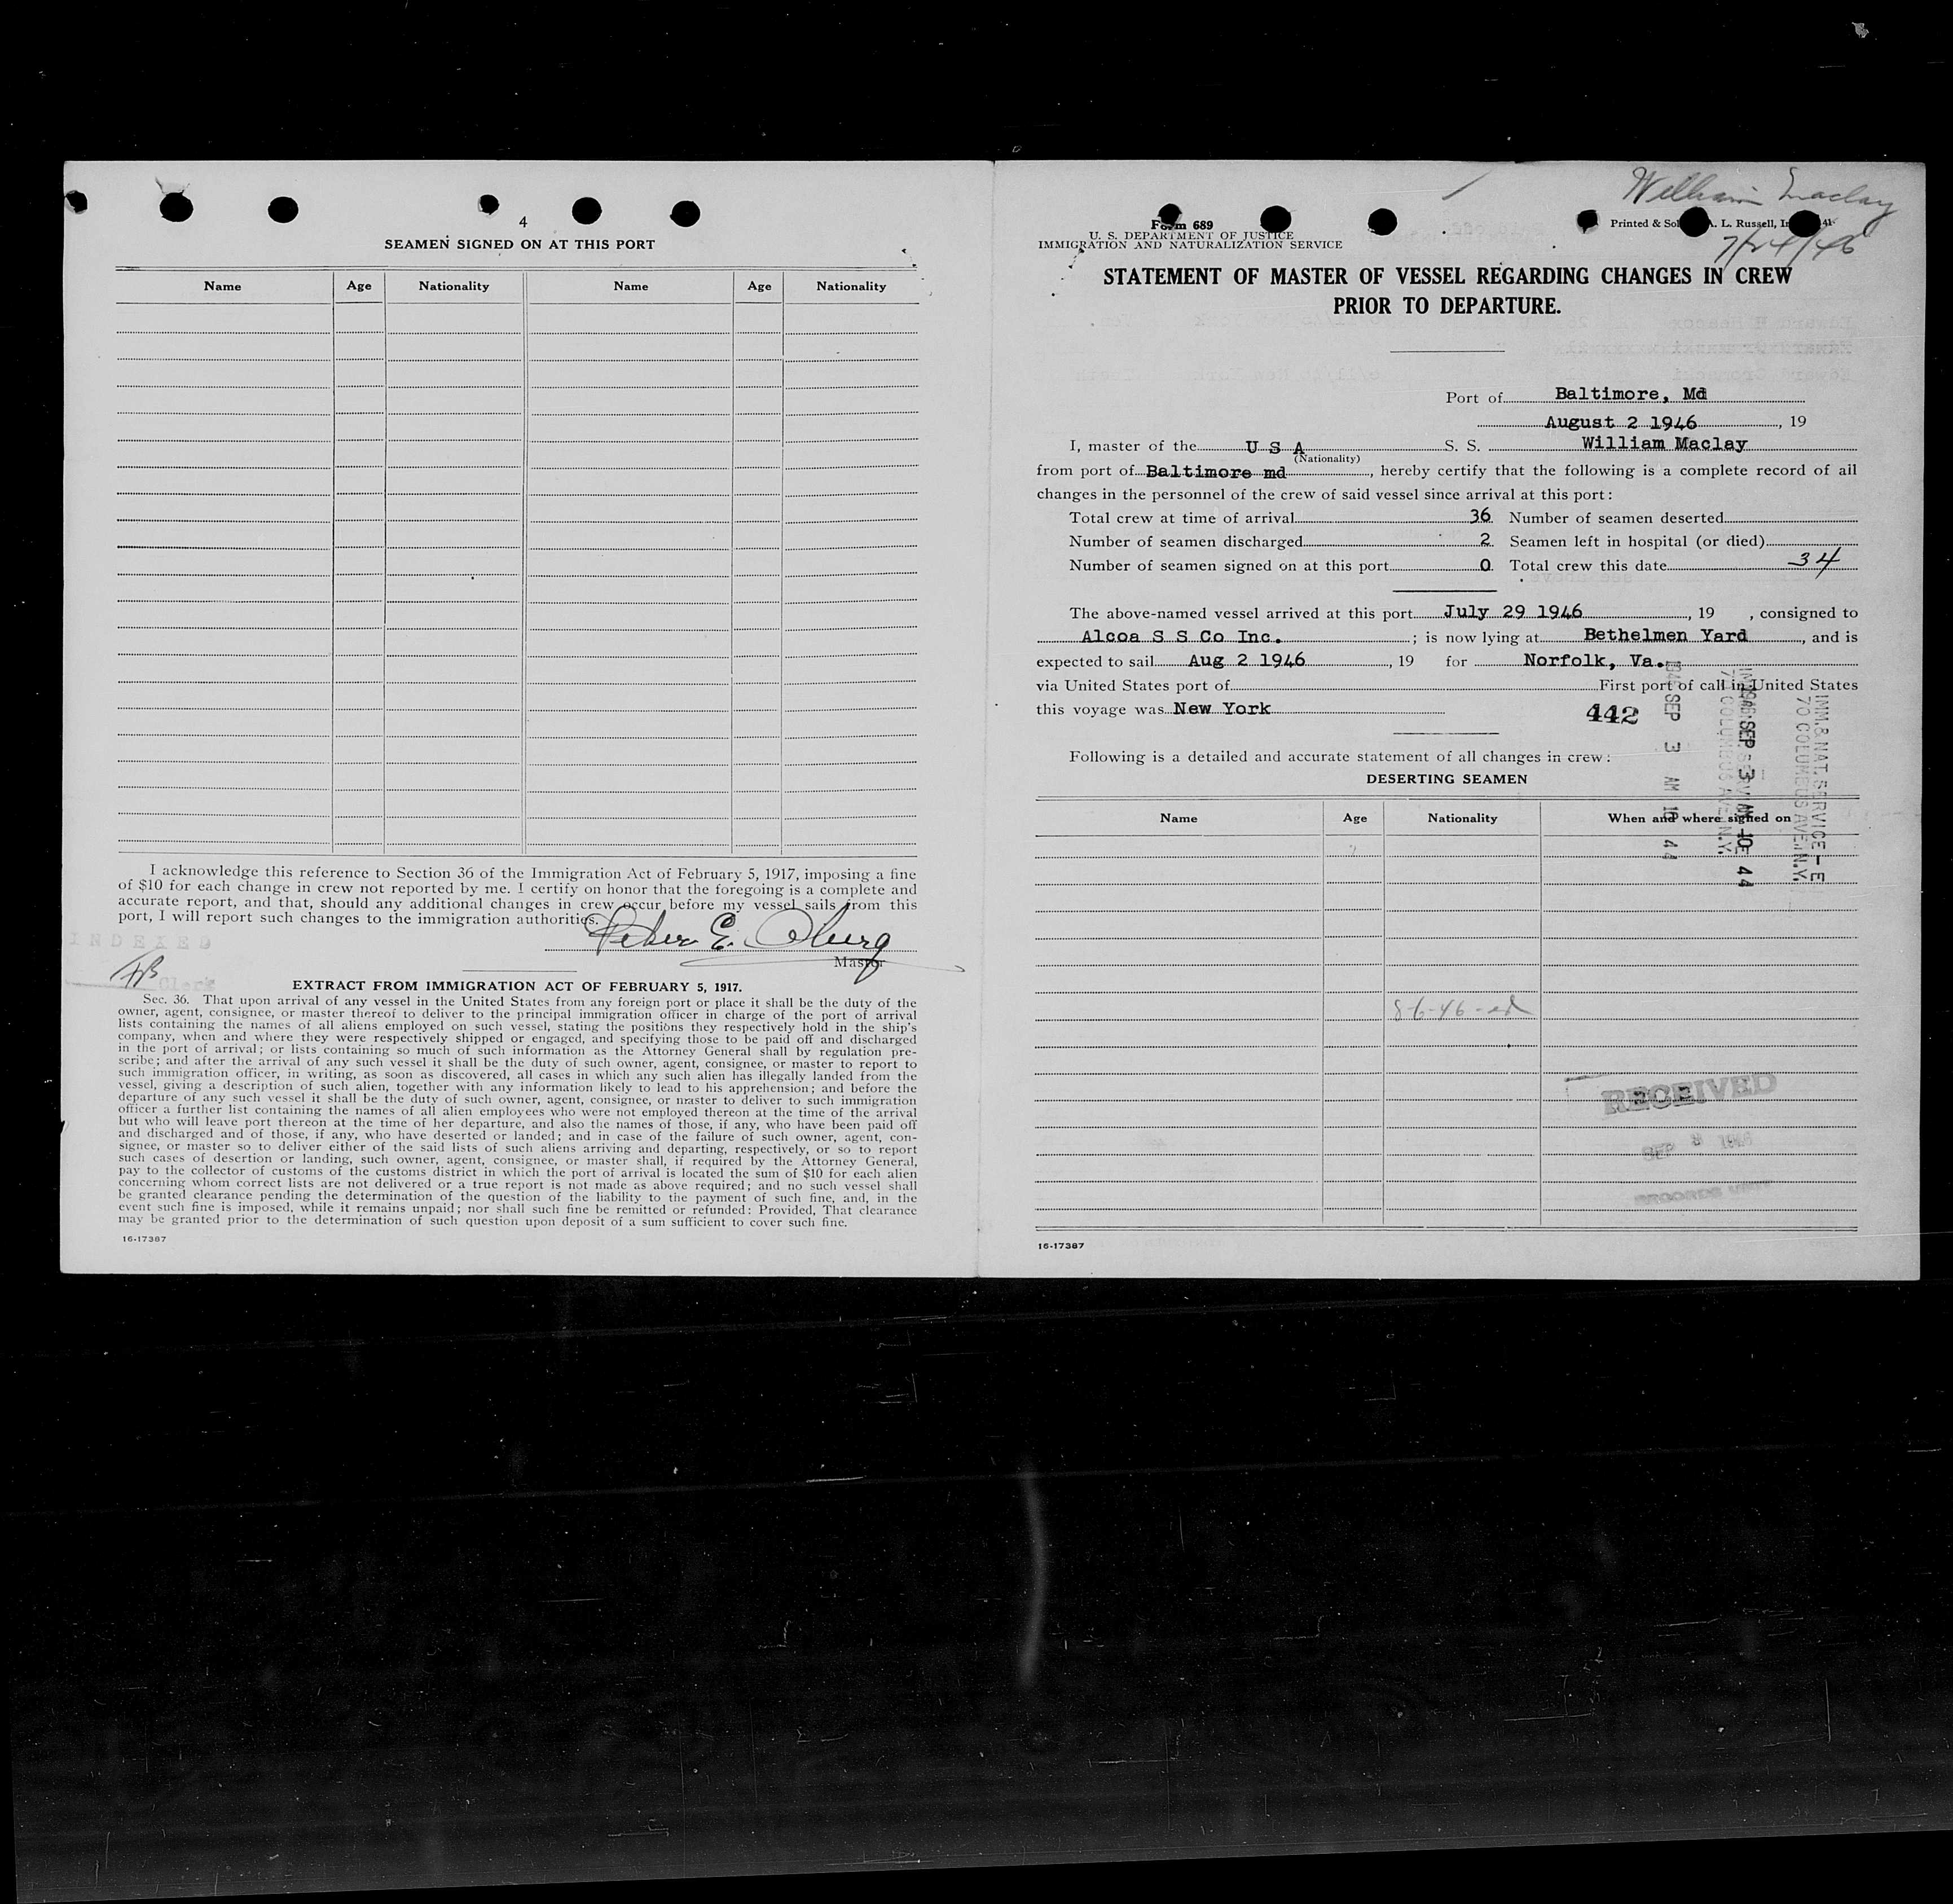 4
SEAMEN SIGNED ON AT THIS PORT
Name Age Nationality Name Age Nationality
I acknowledge this reference to Section 36 of the Immigration Act of February 5, 1917, imposing a fine
of $10 for each change in crew not reported by me. I certify on honor that the foregoing is a complete and
accurate report, and that, should any additional changes in crew occur before my vessel sails from this
port, I will report such changes to the immigration authorities.
Peter E. Oburg
Master
INDEXED
Clerk
EXTRACT FROM IMMIGRATION ACT OF FEBRUARY 5, 1917.
Sec. 36. That upon arrival of any vessel in the United States from any foreign port or place it shall be the duty of the
owner, agent, consignee, or master thereof to deliver to the principal immigration officer in charge of the port of arrival
lists containing the names of all aliens employed on such vessel, stating the positions they respectively hold in the ship's
company, when and where they were respectively shipped or engaged, and specifying those to be paid off and discharged
in the port of arrival; or lists containing so much of such information as the Attorney General shall by regulation pre-
scribe; and after the arrival of any such vessel it shall be the duty of such owner, agent, consignee, or master to report to
such immigration officer, in writing, as soon as discovered, all cases in which any such alien has illegally landed from the
vessel, giving a description of such alien, together with any information likely to lead to his apprehension; and before the
departure of any such vessel it shall be the duty of such owner, agent, consignee, or master to deliver to such immigration
officer a further list containing the names of all alien employees who were not employed thereon at the time of the arrival
but who will leave port thereon at the time of her departure, and also the names of those, if any, who have been paid off
and discharged and of those, if any, who have deserted or landed; and in case of the failure of such owner, agent, con-
signee, or master so to deliver either of the said lists of such aliens arriving and departing, respectively, or so to report
such cases of desertion or landing, such owner, agent, consignee, or master shall, if required by the Attorney General,
pay to the collector of customs of the customs district in which the port of arrival is located the sum of $10 for each alien
concerning whom correct lists are not delivered or a true report is not made as above required; and no such vessel shall
be granted clearance pending the determination of the question of the liability to the payment of such fine, and, in the
event such fine is imposed, while it remains unpaid; nor shall such fine be remitted or refunded: Provided, That clearance
may be granted prior to the determination of such question upon deposit of a sum sufficient to cover such fine.
16-17387
William Maclay
7/24/46
Form 689
U. S. DEPARTMENT OF JUSTICE
IMMIGRATION AND NATURALIZATION SERVICE
Printed & Sol A. L. Russell, In
STATEMENT OF MASTER OF VESSEL REGARDING CHANGES IN CREW
PRIOR TO DEPARTURE.
Port of Baltimore, Md
August 2 1946, 19
I, master of the U S A S. S. William Maclay
(Nationality)
from port of Baltimore md, hereby certify that the following is a complete record of all
changes in the personnel of the crew of said vessel since arrival at this port:
Total crew at time of arrival 36 Number of seamen deserted
Number of seamen discharged 2 Seamen left in hospital (or died)
Number of seamen signed on at this port 0 Total crew this date 34
The above-named vessel arrived at this port July 29 1946, 19 , consigned to
Alcoa S S Co Inc. ; is now lying at Bethelmen Yard, and is
expected to sail Aug 2 1946, 19 for Norfolk, Va.
via United States port of First port of call in United States
this voyage was New York
442
1946 SEP 3 AM 10 44
IMM. & NAT. SERVICE - E
70 COLUMBUS AVE. N.Y.
Following is a detailed and accurate statement of all changes in crew:
DESERTING SEAMEN
Name Age Nationality When and where signed on
8-6-46-ed
RECEIVED
SEP
RECORDS UNIT
16-17387